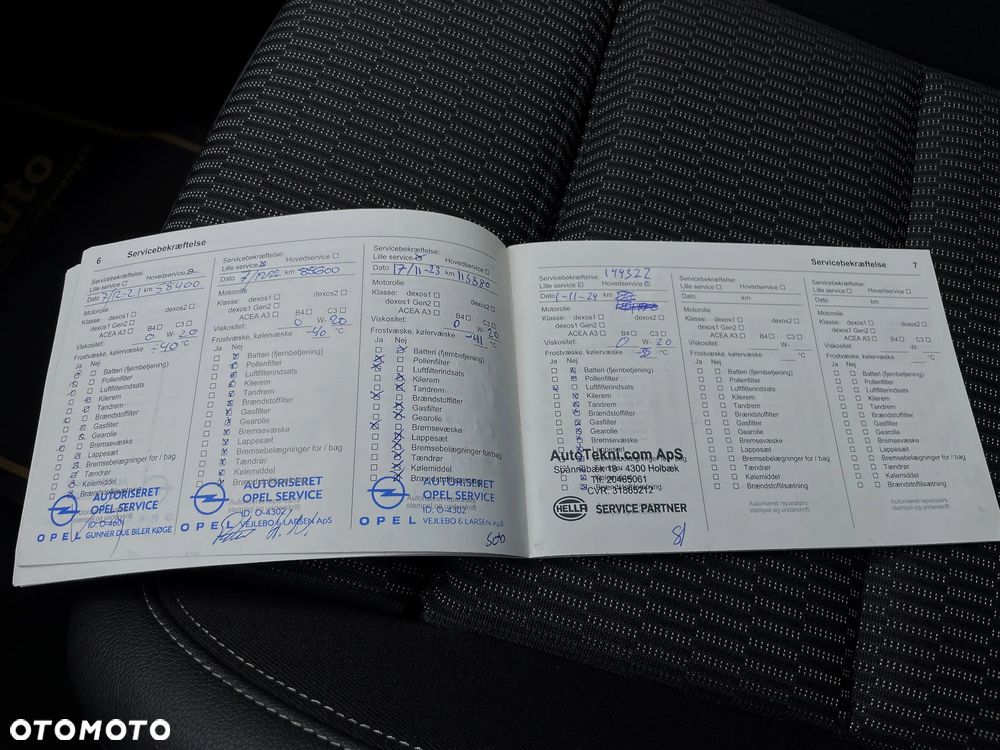 6 Servicebekræftelse
Servicebekræftelse:
Lille service Hovedservice
Dato 7/12-21 km 58400
Motorolie
Klasse: dexos1 dexos2
dexos1 Gen2
ACEA A3 B4 C3
Viskositet: 0 W- 20
Frostvæske, kølervæske -40 °C
Ja Nej
Batteri (fjernbetjening)
Pollenfilter
Luftfilterindsats
Kilerem
Tandrem
Brændstoffilter
Gasfilter
Gearolie
Bremsevæske
Lappesæt
Bremsebelægninger for / bag
Tændrør
Kølemiddel
AUTORISERET
OPEL SERVICE
ID: O-4601
OPEL GUNNER DUE BILER KØGE
Servicebekræftelse:
Lille service Hovedservice
Dato 7/12-22 km 85600
Motorolie
Klasse: dexos1 dexos2
dexos1 Gen2
ACEA A3 B4 C3
Viskositet: 0 W- 20
Frostvæske, kølervæske -40 °C
Ja Nej
Batteri (fjernbetjening)
Pollenfilter
Luftfilterindsats
Kilerem
Tandrem
Brændstoffilter
Gasfilter
Gearolie
Bremsevæske
Lappesæt
Bremsebelægninger for / bag
Tændrør
Kølemiddel
AUTORISERET
OPEL SERVICE
ID: O-4302
OPEL VEJLEBO & LARSEN ApS
Servicebekræftelse:
Lille service Hovedservice
Dato 17/11-23 km
Motorolie
Klasse: dexos1 dexos2
dexos1 Gen2
ACEA A3 B4 C3
Viskositet: 0 W- 20
Frostvæske, kølervæske -41 °C
Ja Nej
Batteri (fjernbetjening)
Pollenfilter
Luftfilterindsats
Kilerem
Tandrem
Brændstoffilter
Gasfilter
Gearolie
Bremsevæske
Lappesæt
Bremsebelægninger for / bag
Tændrør
Kølemiddel
AUTORISERET
OPEL SERVICE
ID: O-4302
OPEL VEJLEBO & LARSEN ApS
Servicebekræftelse 7
Servicebekræftelse: 144322
Lille service Hovedservice
Dato 1-11-24 km
Motorolie
Klasse: dexos1 dexos2
dexos1 Gen2
ACEA A3 B4 C3
Viskositet: 0 W- 20
Frostvæske, kølervæske -35 °C
Ja Nej
Batteri (fjernbetjening)
Pollenfilter
Luftfilterindsats
Kilerem
Tandrem
Brændstoffilter
Gasfilter
Gearolie
Bremsevæske
AutoTekni.com ApS
Spånnebæk 19 - 4300 Holbæk
Tlf. 20465061
CVR. 31865212
HELLA SERVICE PARTNER
Servicebekræftelse:
Lille service Hovedservice
Dato km
Motorolie
Klasse: dexos1 dexos2
dexos1 Gen2
ACEA A3 B4 C3
Viskositet: W-
Frostvæske, kølervæske °C
Ja Nej
Batteri (fjernbetjening)
Pollenfilter
Luftfilterindsats
Kilerem
Tandrem
Brændstoffilter
Gasfilter
Gearolie
Bremsevæske
Lappesæt
Bremsebelægninger for / bag
Tændrør
Kølemiddel
Brændstofudskilning
Autoriseret reparatørs
stempel og underskrift
Servicebekræftelse:
Lille service Hovedservice
Dato km
Motorolie
Klasse: dexos1 dexos2
dexos1 Gen2
ACEA A3 B4 C3
Viskositet: W-
Frostvæske, kølervæske °C
Ja Nej
Batteri (fjernbetjening)
Pollenfilter
Luftfilterindsats
Kilerem
Tandrem
Brændstoffilter
Gasfilter
Gearolie
Bremsevæske
Lappesæt
Bremsebelægninger for / bag
Tændrør
Kølemiddel
Autoriseret reparatørs
stempel og underskrift
OTOMOTO